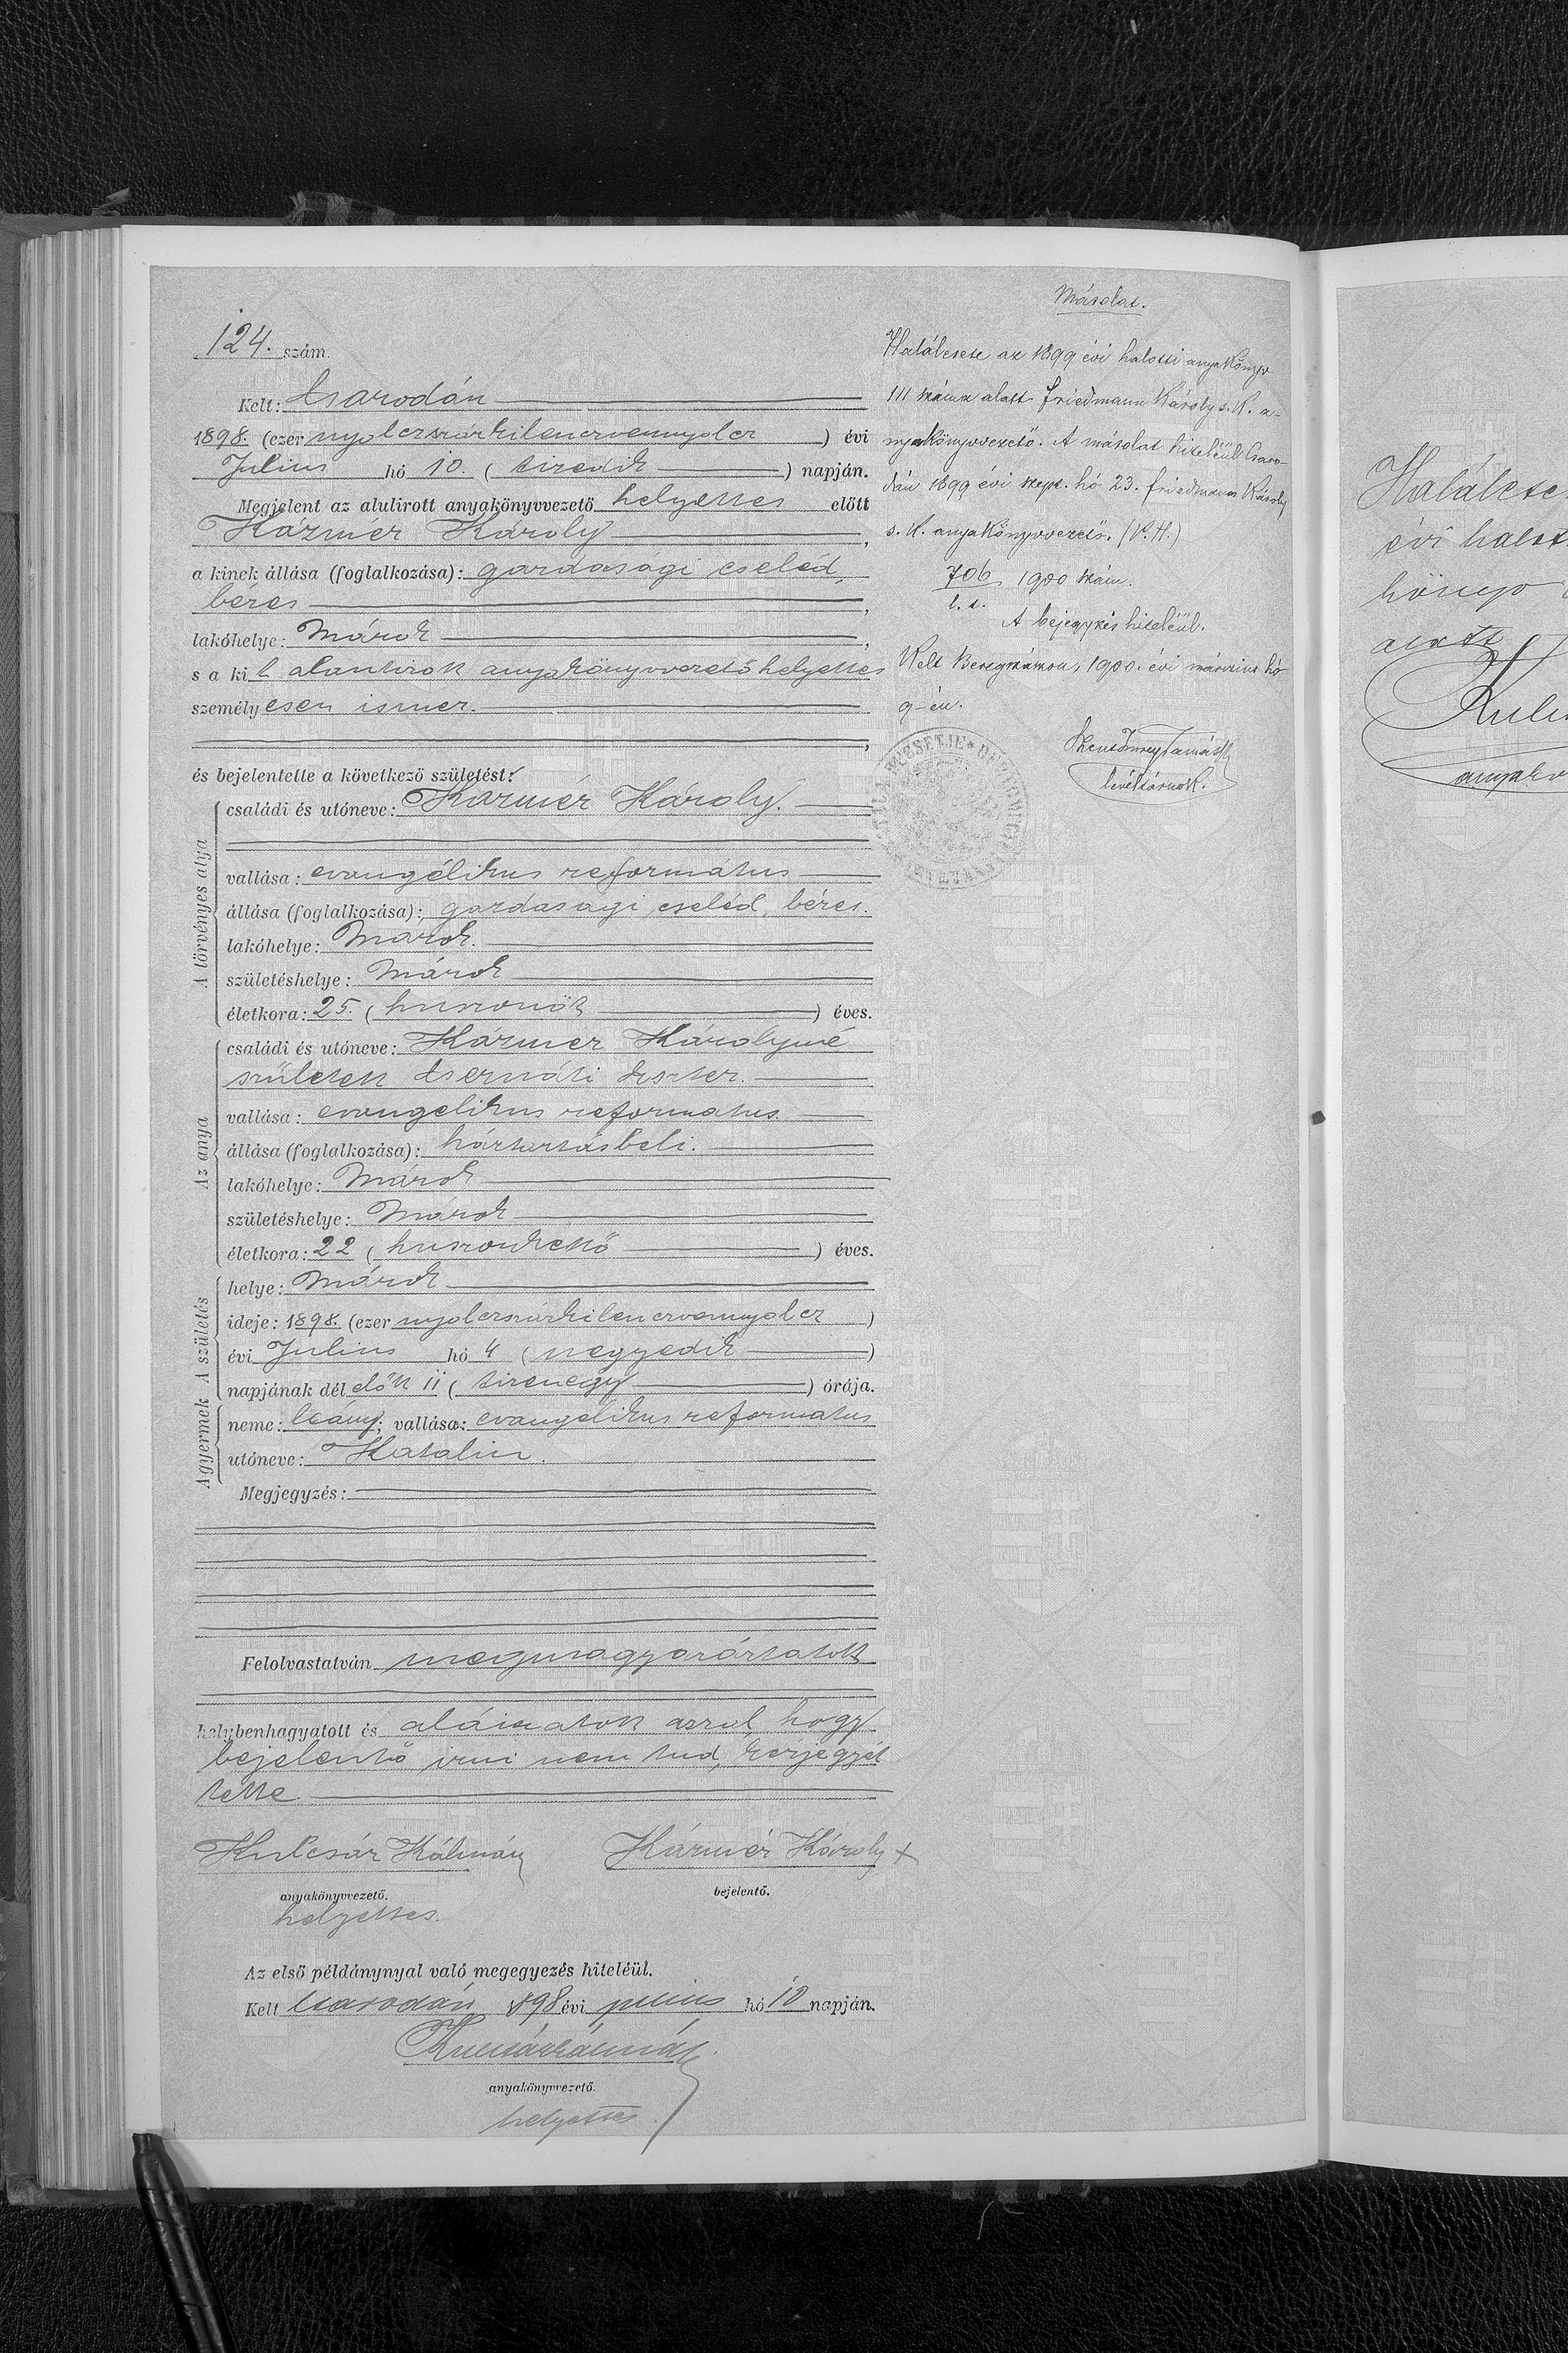 124. szám.
Kelt: Csarodán
1898. (ezer nyolczszázkilenczvennyolcz) évi
Julius hó 10. (tizedik) napján.
Megjelent az alulirott anyakönyvvezető helyettes előtt
Kázmér Károly,
a kinek állása (foglalkozása): gazdasági cseléd,
béres,
lakóhelye: Márok,
s a kit alantirott anyakönyvvezető helyettes
személyesen ismer.
és bejelentette a következő születést:
A törvényes atya
családi és utóneve: Kázmér Károly.
vallása: evangélikus református
állása (foglalkozása): gazdasági cseléd, béres.
lakóhelye: Márok.
születéshelye: Márok
életkora: 25. (huszonöt) éves.
Az anya
családi és utóneve: Kázmér Károlyné
született Csernáti Eszter.
vallása: evangelikus reformatus.
állása (foglalkozása): háztartásbeli.
lakóhelye: Márok
születéshelye: Márok
életkora: 22 (huszonkettő) éves.
A születés
helye: Márok
ideje: 1898. (ezer nyolczszázkilenczvennyolcz)
évi Julius hó 4 (negyedik)
napjának délelőtt 11 (tizenegy) órája.
A gyermek
neme: leány; vallása: evangelikus reformatus
utóneve: Katalin.
Megjegyzés:
Felolvastatván megmagyaráztatott
helybenhagyatott és aláiratott azzal, hogy
bejelentő irni nem tud, kézjegyét
tette.
Kulcsár Kálmán Kázmér Károly +
anyakönyvvezető. bejelentő.
helyettes.
Az első példánynyal való megegyezés hiteléül.
Kelt Csarodán 898 évi julius hó 10 napján.
Kulcsár Kálmán
anyakönyvvezető.
helyettes.
Másolat.
Halálesete az 1899 évi halotti anyakönyv
111 száma alatt. Friedmann Károly s. k. a-
nyakönyvvezető. A másolat hiteléül Csaro-
dán 1899 évi szept. hó 23. Friedmann Károly
s. k. anyakönyvvezető. (P. H.)
706 1900 szám.
A bejegyzés hiteléül.
Kelt Beregszászon, 1900. évi márczius hó
9-én.
levéltárnok.
Halálese
évi halot
alatt
anyakö